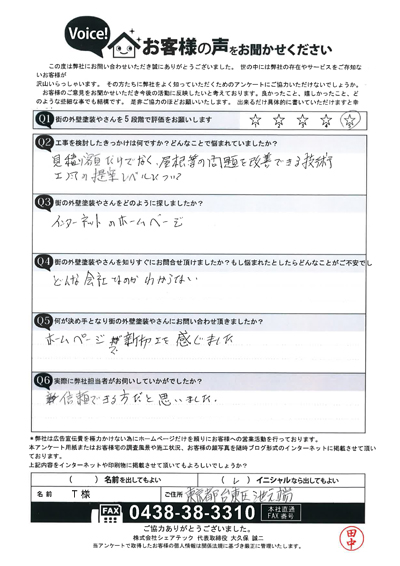 Voice!
お客様の声をお聞かせください
この度は弊社にお問い合わせいただき誠にありがとうございました。 世の中には弊社の存在やサービスをご存知ないお客様が
沢山いらっしゃいます。 その方たちに弊社をよく知っていただくためのアンケートにご協力いただけないでしょうか。
お客様のご意見をお聞かせいただき今後の活動に反映したいと考えております。良かったこと、嬉しかったこと、ど
のような些細な事でも結構です。 是非ご協力のほどお願いいたします。 出来るだけ具体的に書いていただけますと幸
Q1 街の外壁塗装やさんを5段階で評価をお願いします
☆ ☆ ☆ ☆ ☆
Q2 工事を検討したきっかけは何ですか?どんなことで悩まれていましたか?
見積り額だけでなく、屋根等の問題を改善できる技術
工事の提案レベルについて
Q3 街の外壁塗装やさんをどのように探しましたか?
インターネットのホームページ
Q4 街の外壁塗装やさんを知りすぐにお問合せ頂けましたか?もし悩まれたとしたらどんなことがご不安でし
どんな会社なのかわからない
Q5 何が決め手となり街の外壁塗装やさんにお問い合わせ頂きましたか?
ホームページ で親切さを感じました
Q6 実際に弊社担当者がお伺いしていかがでしたか?
信頼できる方だと思いました。
*弊社は広告宣伝費を極力かけない為にホームページだけを頼りにお客様への営業活動を行っております。
本アンケート用紙またはお客様宅の調査風景や施工状況、お客様の顔写真を随時ブログ形式のインターネットに掲載させて頂いて
おります。
上記内容をインターネットや印刷物に掲載させて頂いてもよろしいでしょうか?
( ) 名前を出してもよい ( レ ) イニシャルなら出してもよい
名前 T様 ご住所 東京都台東区池之端
FAX 0438-38-3310 本社直通 FAX番号
ご協力ありがとうございました。
株式会社シェアテック 代表取締役 大久保 誠二
当アンケートで取得したお客様の個人情報は関係法規に基づき厳正に管理いたします。
田中